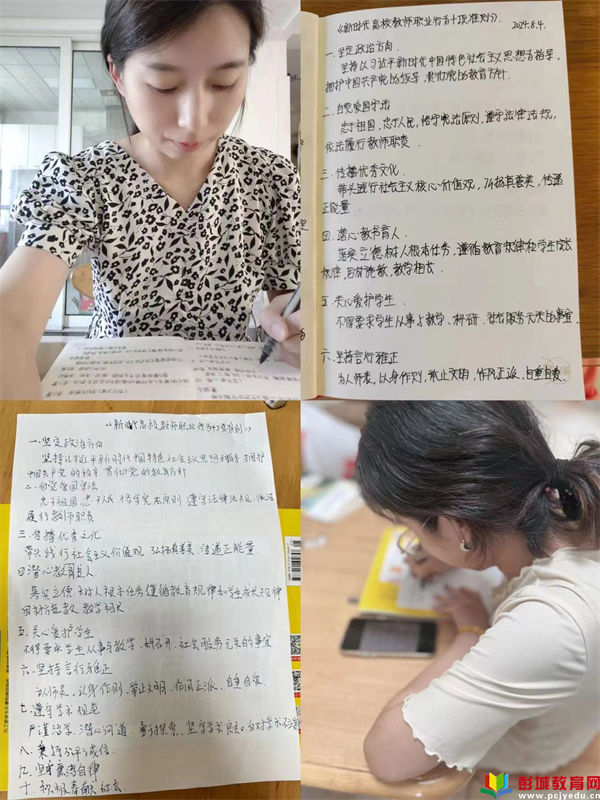 《新时代高校教师职业行为十项准则》
2024.8.4.
一、坚定政治方向.
坚持以习近平新时代中国特色社会主义思想为指导,
拥护中国共产党的领导,贯彻党的教育方针.
二、自觉爱国守法
忠于祖国,忠于人民,恪守宪法原则,遵守法律法规,
依法履行教师职责.
三、传播优秀文化.
带头践行社会主义核心价值观,弘扬真善美,传递
正能量.
四、潜心教书育人.
落实立德树人根本任务,遵循教育规律和学生成长
规律,因材施教,教学相长.
五、关心爱护学生.
不得要求学生从事与教学、科研、社会服务无关的事宜.
六、坚持言行雅正
为人师表,以身作则,举止文明,作风正派,自重自爱.
《新时代高校教师职业行为十项准则》
一.坚定政治方向
坚持以习近平新时代中国特色社会主义思想为指导 拥护
中国共产党的领导.贯彻党的教育方针
二.自觉爱国守法
忠于祖国 忠于人民 恪守宪法原则 遵守法律法规 依法
履行教师职责
三.传播优秀文化
带头践行社会主义价值观 弘扬真善美.传递正能量.
四潜心教育育人
落实立德树人根本任务遵循教育规律和学生成长规律
因材施教 教学相长
五.关心爱护学生
不得要求学生从事与教学、科研、社会服务无关的事宜
六.坚持言行雅正
为人师表.以身作则.举止文明.作风正派.自重自爱.
七.遵守学术规范
严谨治学.潜心问道.勇于探索.坚守学术良知.反对学术不端
八.秉持公平诚信.
九.坚守廉洁自律
十.积极奉献社会.
彭城教育网
www.pcjyedu.cn